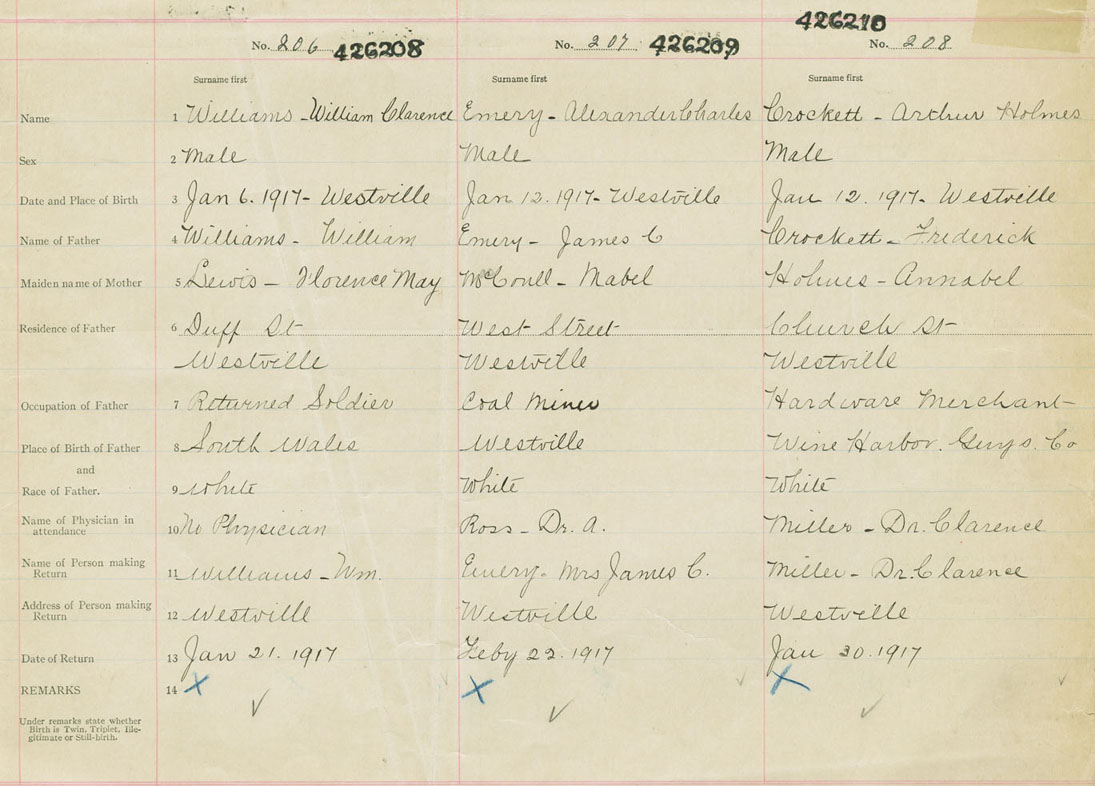 426210
No. 206 426208 No. 207 426209 No. 208
Surname first Surname first Surname first
Name 1 Williams - William Clarence Emery - Alexander Charles Crockett - Arthur Holmes
Sex 2 Male Male Male
Date and Place of Birth 3 Jan 6. 1917 - Westville Jan 12. 1917 - Westville Jan 12. 1917 - Westville
Name of Father 4 Williams - William Emery - James C Crockett - Frederick
Maiden name of Mother 5 Lewis - Florence May Mabel Holmes - Annabel
Residence of Father 6 Duff St West Street Church St
Westville Westville Westville
Occupation of Father 7 Returned Soldier Coal Miner Hardware Merchant
Place of Birth of Father 8 South Wales Westville Wine Harbor. Guys. Co
and
Race of Father. 9 White White White
Name of Physician in
attendance 10 No Physician Ross - Dr. A. Miller - Dr. Clarence
Name of Person making
Return 11 Williams - Wm. Emery - Mrs James C. Miller - Dr. Clarence
Address of Person making
Return 12 Westville Westville Westville
Date of Return 13 Jan 21. 1917 Feby 22. 1917 Jan 30. 1917
REMARKS 14 X X X
Under remarks state whether
Birth is Twin, Triplet, Ille-
gitimate or Still-birth.